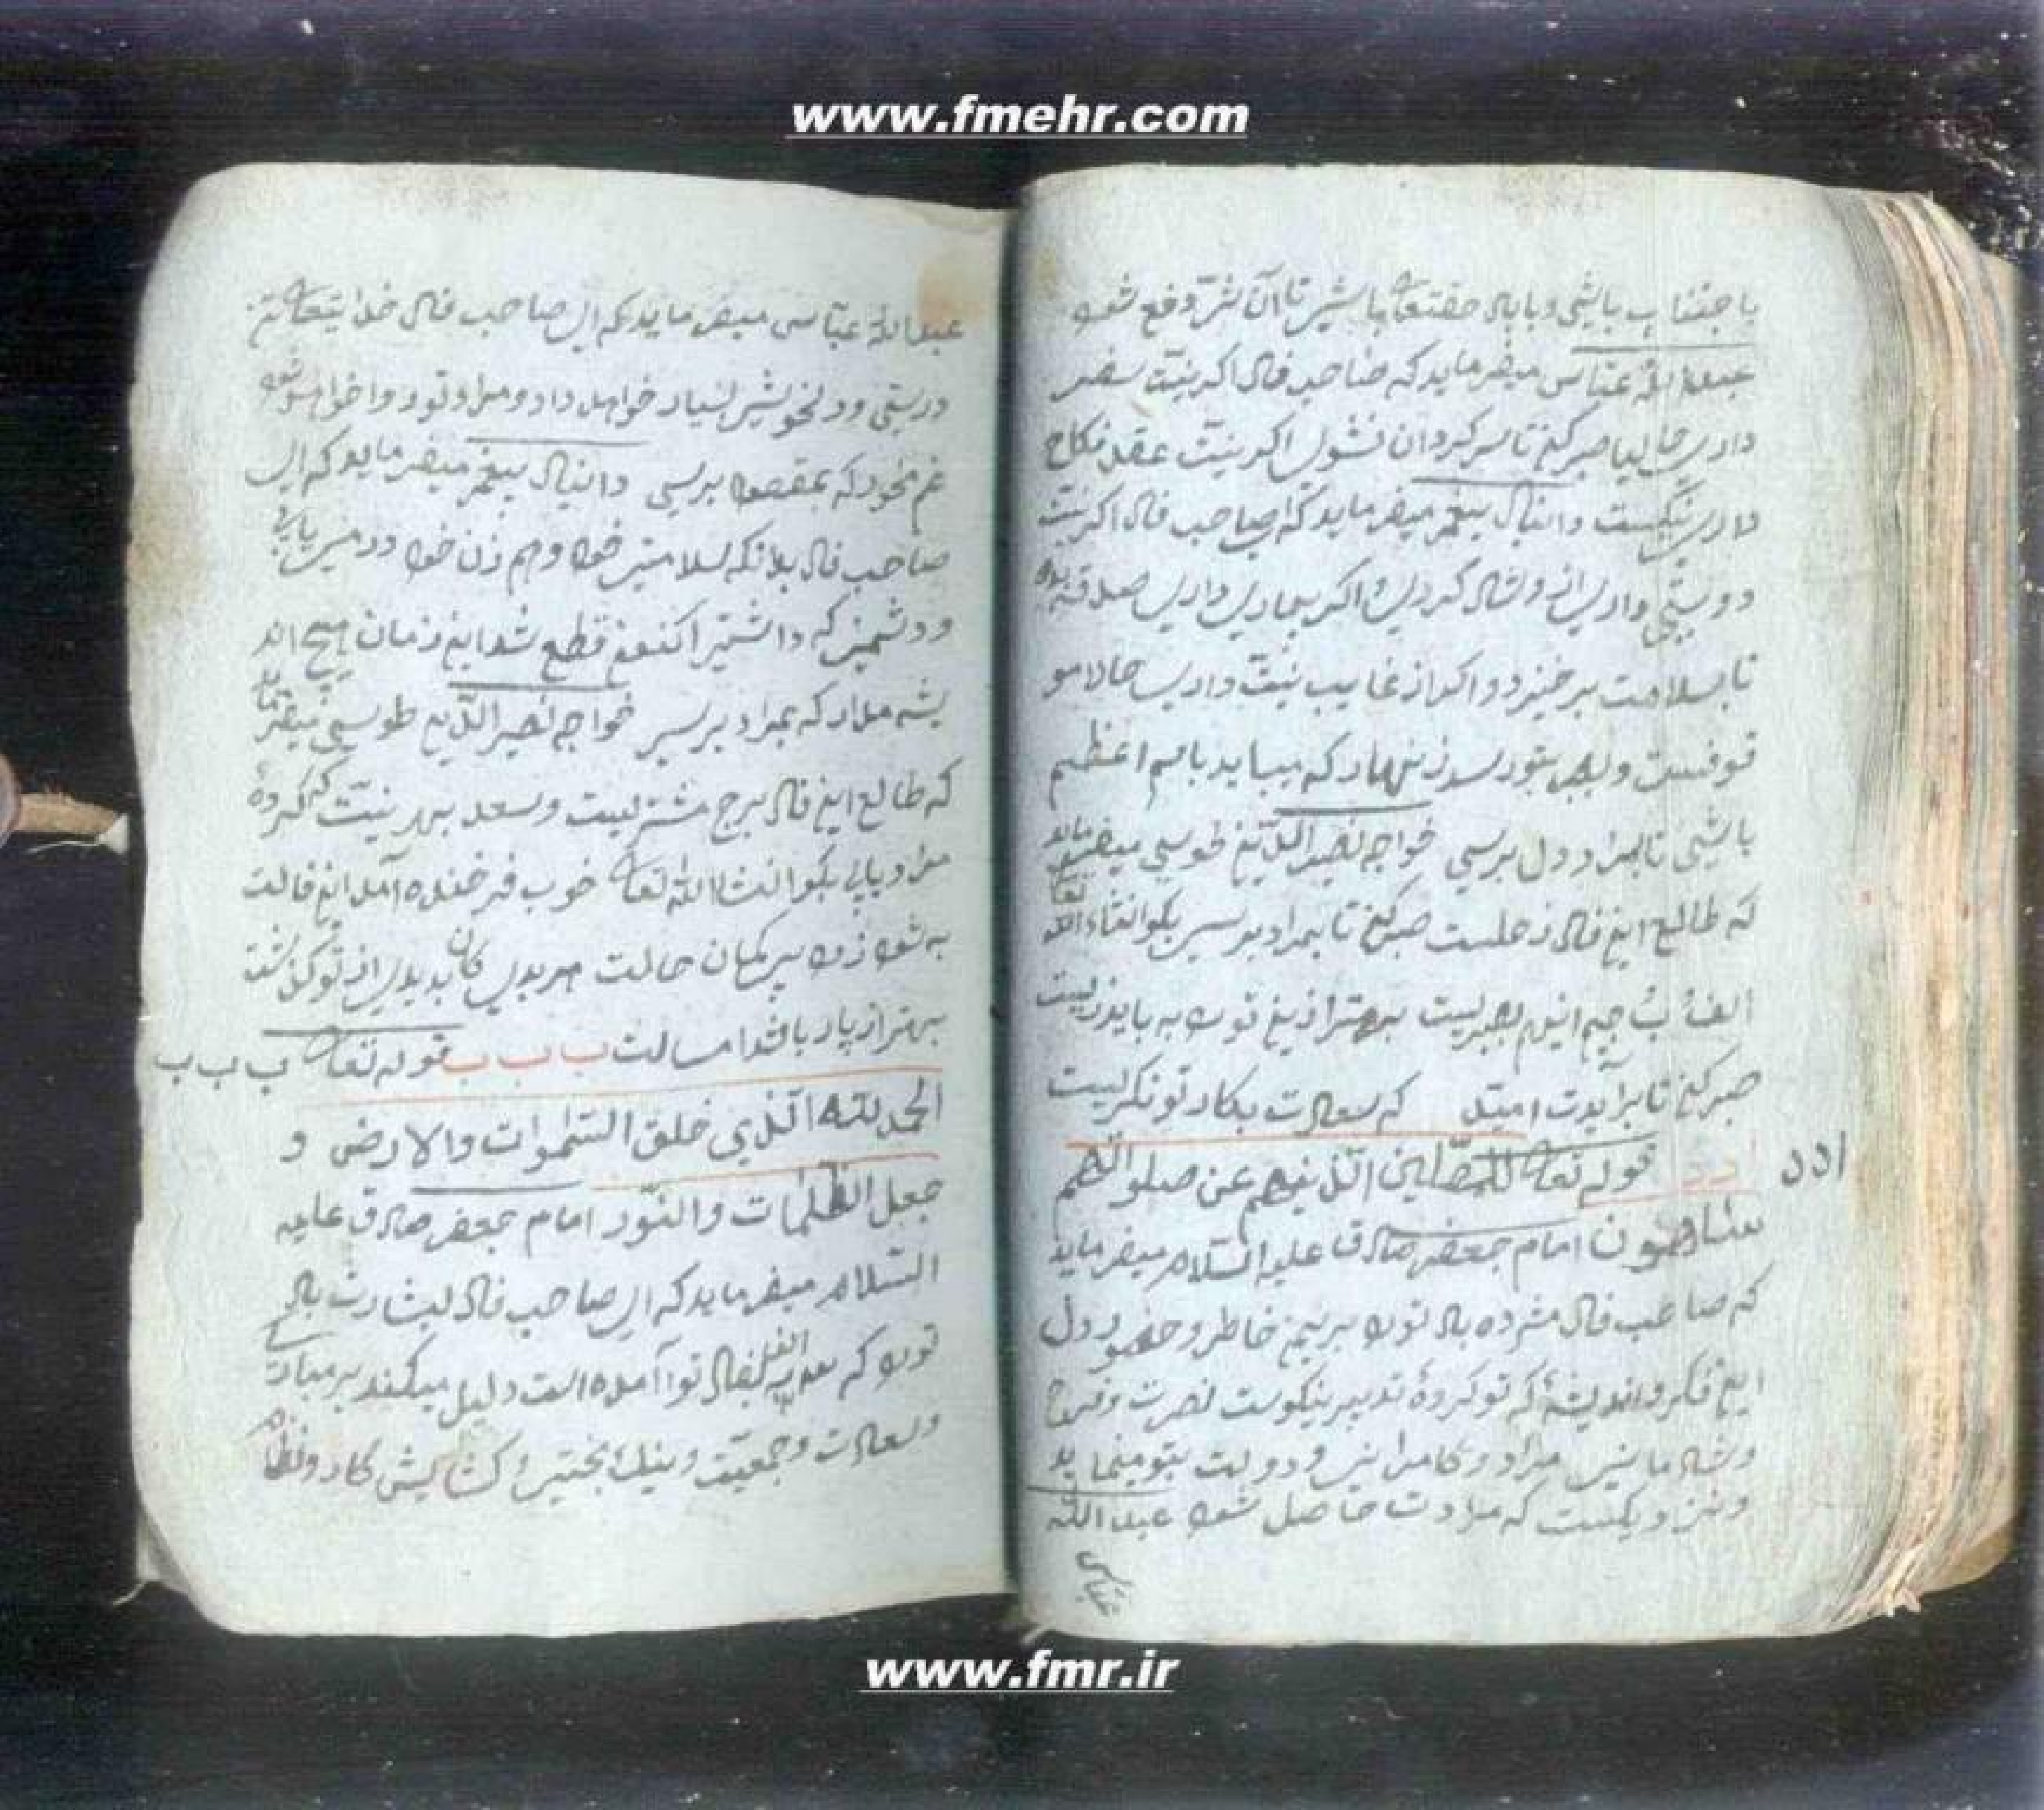 www.fmehr.com
باجتناب باشی و بیاد حقتعا باشی تا آن شر دفع شود
عبد الله عباس میفرماید که صاحب فال اگر نیت سفر
داری صبر کن تا سرکردان نشوی اگر نیت عقد نکاح
داری نیکست دانیال پیغمبر میفرماید که صاحب فال اگر نیت
دوستی داری از و شاد کردی و اگر بیماری داری صدقه بده
تا بسلامت برخیزد و اگر از غایب نیت داری حالا مو
قوفست و بتو رسد زنهار که میباید باسم اعظم
باشی تا بمراد دل برسی خواجه نصیر الدین طوسی میفرماید
که طالع این فال زحلست صبر کن تا بمراد برسی بکو انشاء الله تعا
الف ب جیم
صبر کن تا برآیدت امید که سعادت بکار تو نکریست
ادد
قوله تعا للمصلین الذینهم عن صلواتهم
ساهون امام جعفر صادق علیه السلام میفرماید
که صاحب فال مژده باد ترا خاطر و حضور دل
این فکر و اندیشه که تو کردۀ تدبیر نیکوست نصرت و فتح
و شادمانی مراد و کامرانی و دولت بتو مینماید
و نزدیکست که مرادت حاصل شود عبد الله
عباس
عبد الله عباس میفرماید که ای صاحب فال خدا یتعا تن
درستی و دلخوشی بسیار خواهد داد و مراد تو روا خواهد شد
غم مخور که بمقصود برسی دانیال پیغمبر میفرماید که ای
صاحب فال بدانکه سلامتی خود و هم زن خود
و دشمنی که داشتی اکنون قطع شد این زمان هیچ اند
یشه مدار که بمراد برسی خواجه نصیر الدین طوسی میفرماید
که طالع این فال برج مشتریست و سعد بهر نیت که کردۀ
مراد یابی بکو انشا الله تعا خوب فرخنده آمد این فالت
به شود زود بیکمان حالت هر بدی کان بدیدی از تو گذشت
بهتر از پار باشد امسالت ب ب ب قوله تعا ب ب ب
الحمد لله الذی خلق السموات والارض و
جعل الظلمات والنور امام جعفر صادق علیه
السلام میفرماید که ای صاحب فال بشارت باد
بفال تو آمده است دلیل میکند بر مبارک
و سعادت و جمعیت و نیک بختی و کشایش کار و نظام
www.fmr.ir